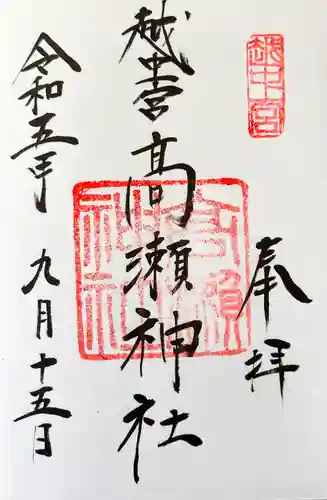 越中宮
奉拝
越中宮 高瀬神社
令和五年 九月十五日